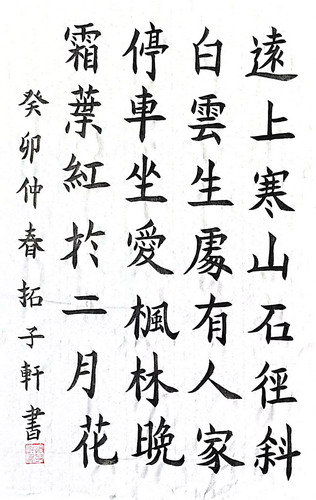 遠上寒山石徑斜
白雲生處有人家
停車坐愛楓林晚
霜葉紅於二月花
癸卯仲春拓子軒書